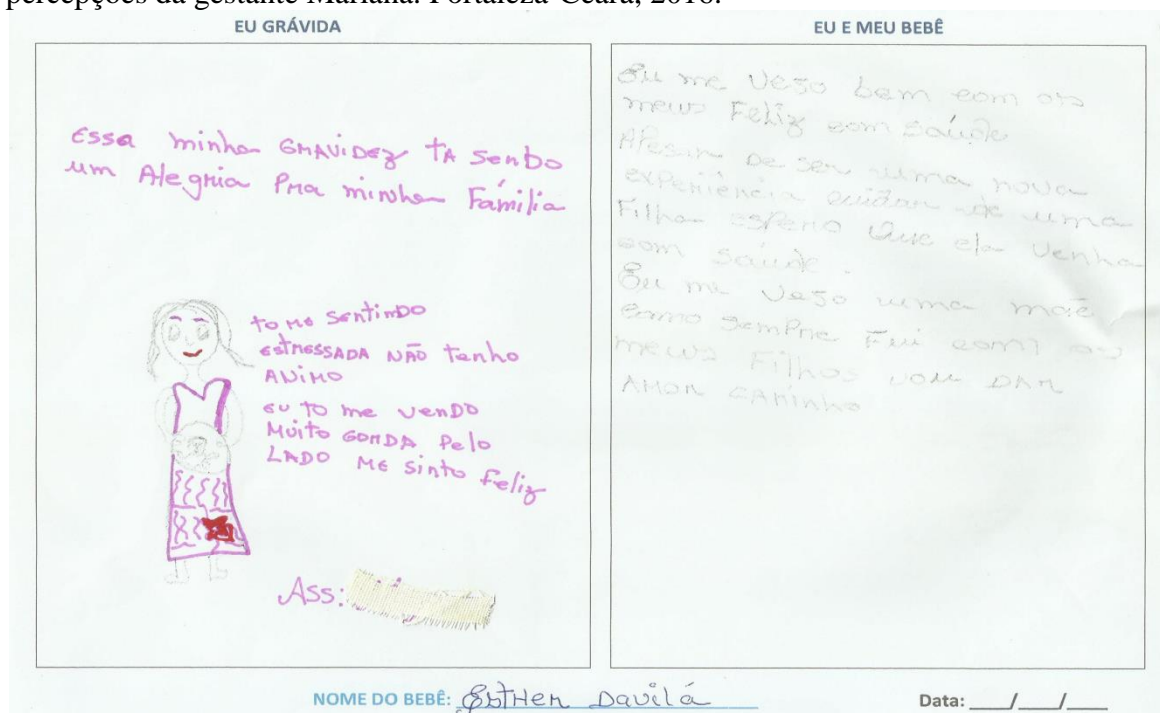 percepções da gestante Mariana. Fortaleza-Ceará, 2016.
EU GRÁVIDA
Essa minha GRAVIDEZ TA SENDO
um Alegria Pra minha Família
to me sentindo
estressada NÃO tenho
ANIMO
eu to me vendo
Muito GORDA Pelo
LADO Me sinto feliz
Ass:
EU E MEU BEBÊ
Eu me Vejo bem com os
meus Feliz com saúde
APesar De ser uma nova
experiência cuidar de uma
Filha espero Que ela Venha
com saúde.
Eu me Vejo uma mãe
como sempre Fui com os
meus Filhos vou DAR
AMOR CARINHO
NOME DO BEBÊ: Esther Davilá
Data: ___/___/___